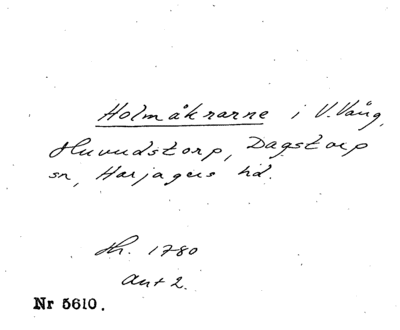 Holmåkrarne i V. Vång,
Huvudstorp, Dagstorp
sn, Harjagers hd.
Hr. 1780
Akt 2.
Nr 5610.